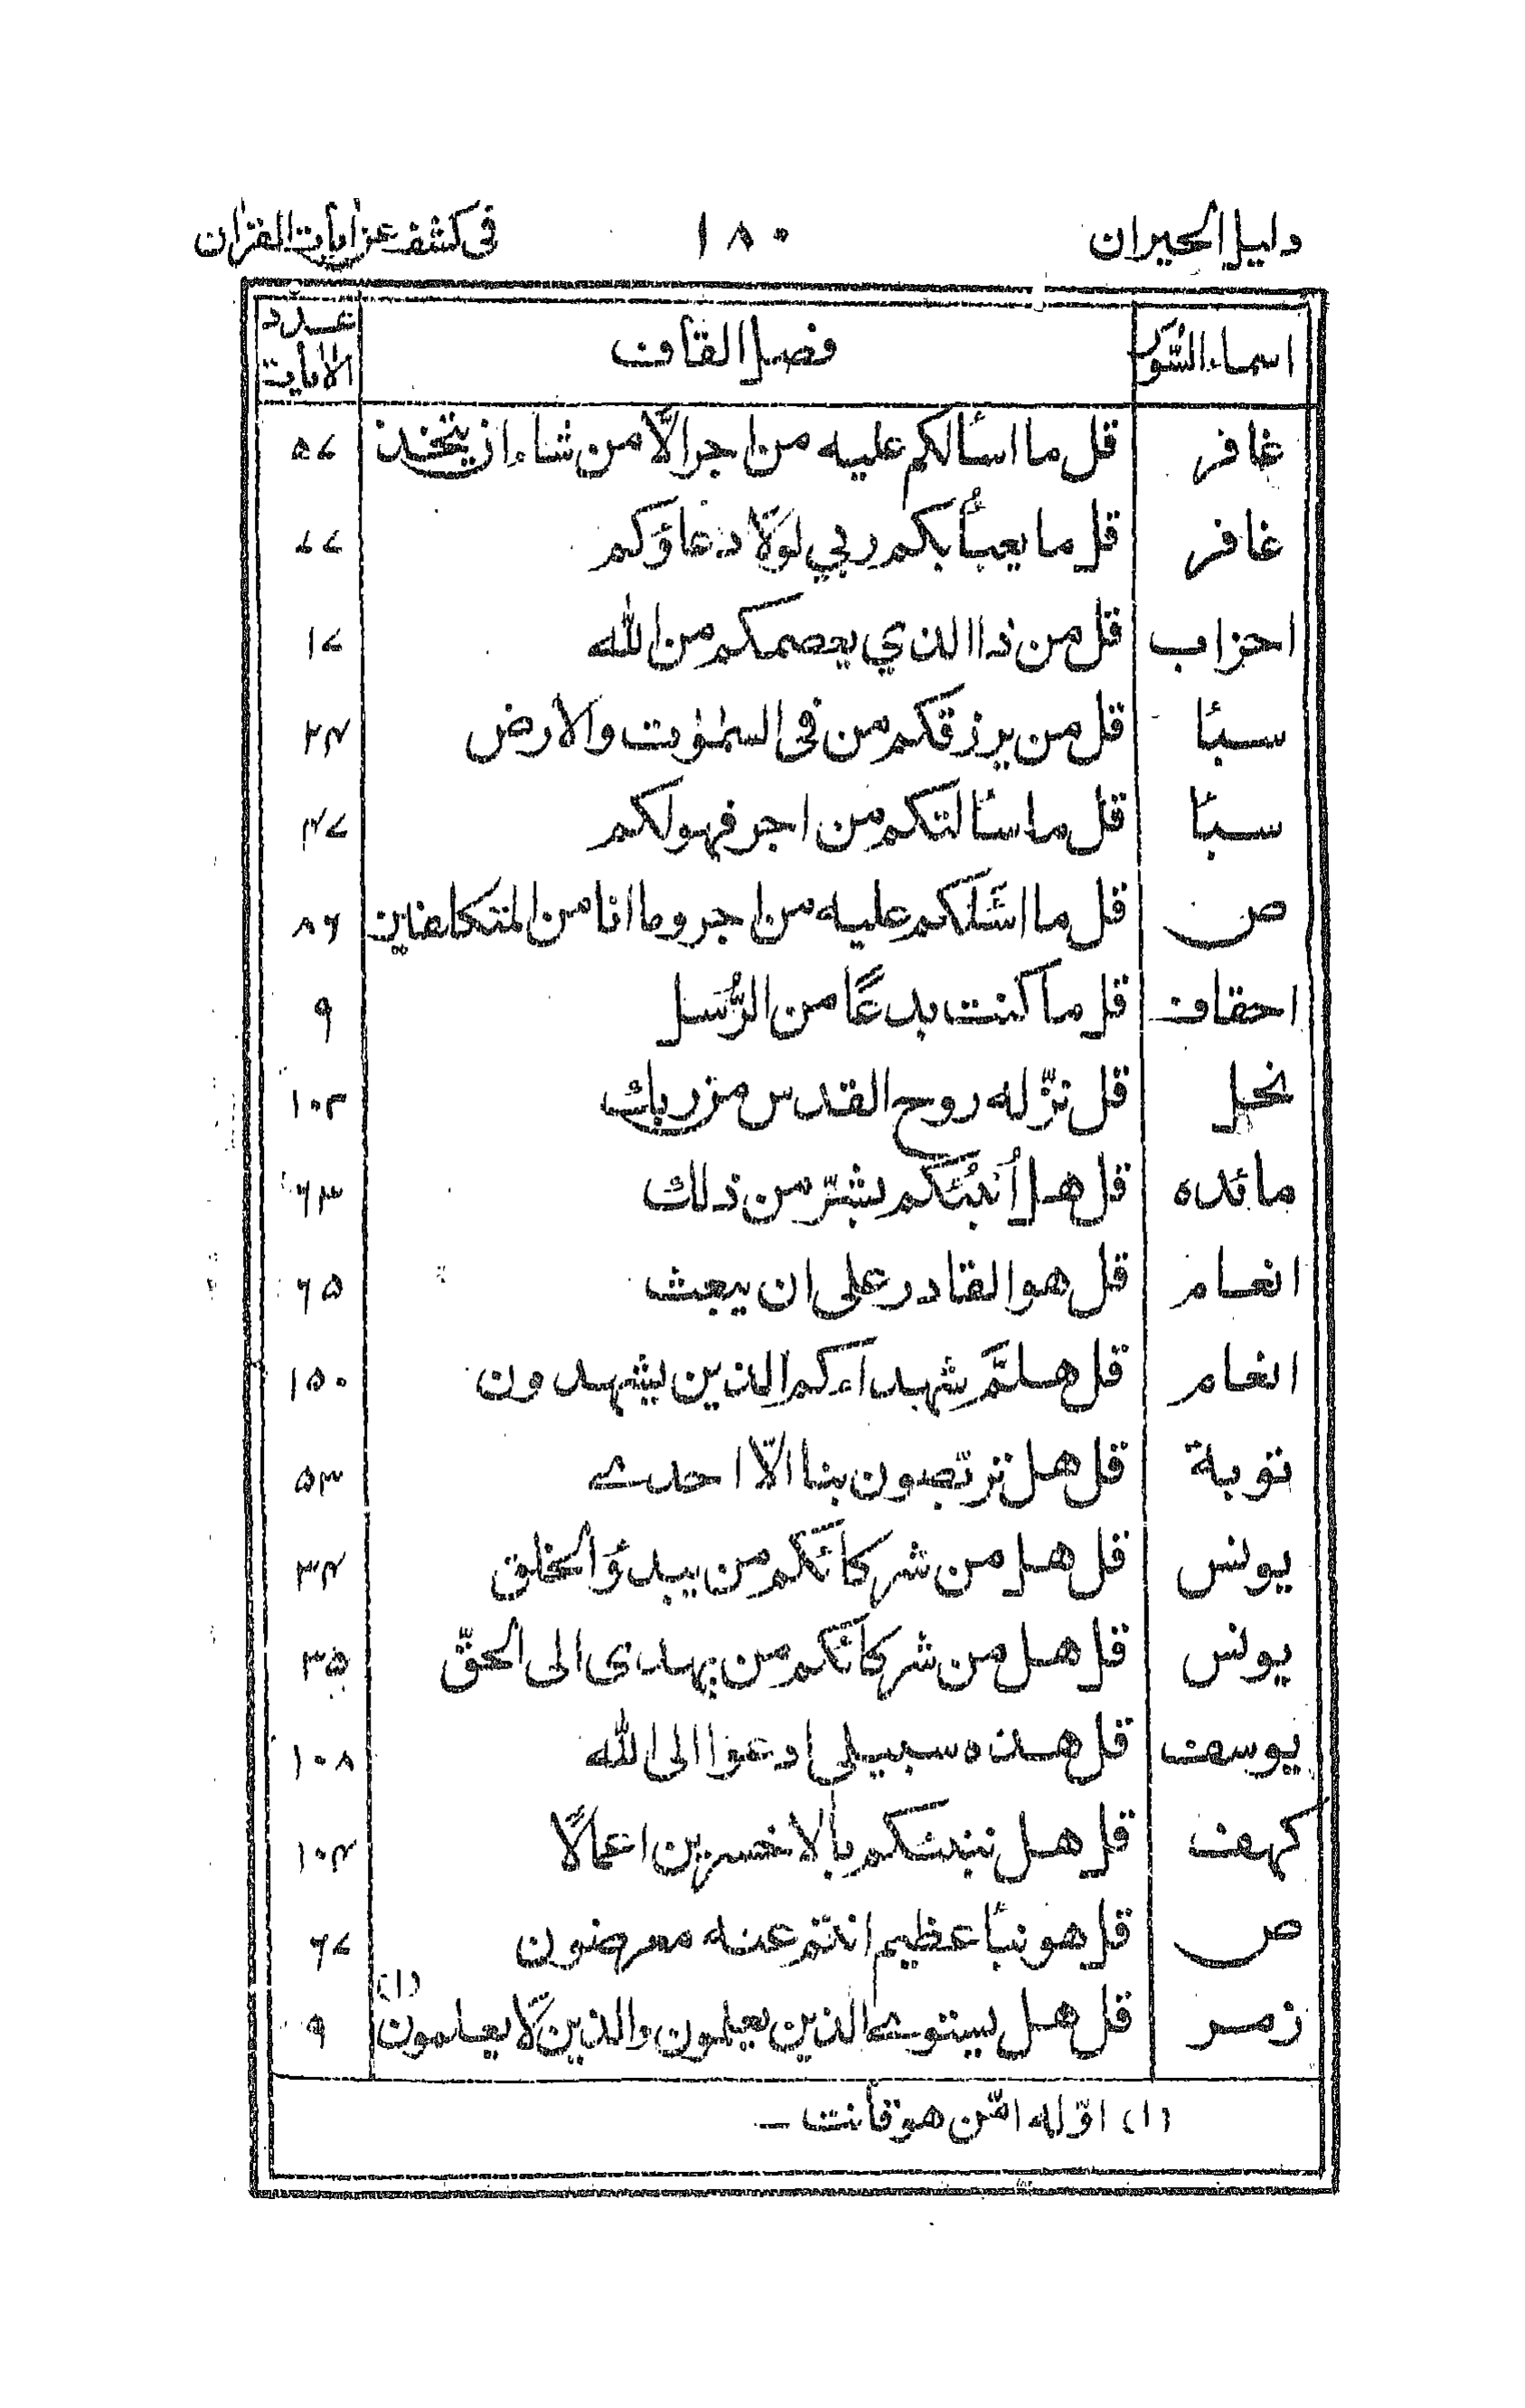 دليل الحيران ١٨٠ في كشف عن ايات القران
اسماء السّور فصل القاف عدد الاٰيات
غافر قل ما اسألكم عليه من اجر الّا من شاء ان يتخذ ٥٧
غافر قل ما يعبأ بكم ربي لولا دعاؤكم ٧٧
احزاب قل من ذا الذي يعصمكم من الله ١٧
سبأ قل من يرزقكم من فى السمٰوٰت والارض ٢٤
سبأ قل ما سألتكم من اجر فهو لكم ٤٧
ص قل ما اسْئلكم عليه من اجر وما انا من المتكلفين ٨٦
احقاف قل ما كنت بدعًا من الرُّسل ٩
نحل قل نزّله روح القدس من ربك ١٠٢
مائده قل هل أُنبئُكم بشرّ من ذلك ٦٣
انعام قل هو القادر على ان يبعث ٦٥
انعام قل هلمَّ شهداءكم الذين يشهدون ١٥٠
توبة قل هل تربّصون بنا الّا احدى ٥٣
يونس قل هل من شركائكم من يبدؤ الخلق ٣٤
يونس قل هل من شركائكم من يهدى الى الحقّ ٣٥
يوسف قل هذه سبيلى ادعوا الى الله ١٠٨
كهف قل هل ننبئكم بالاخسرين اعمالًا ١٠٤
ص قل هو نبأ عظيم انتم عنه معرضون ٦٧
زمر قل هل يستوى الذين يعلمون والذين لا يعلمون (١) ٩
(١) اوّله امّن هو قانت —